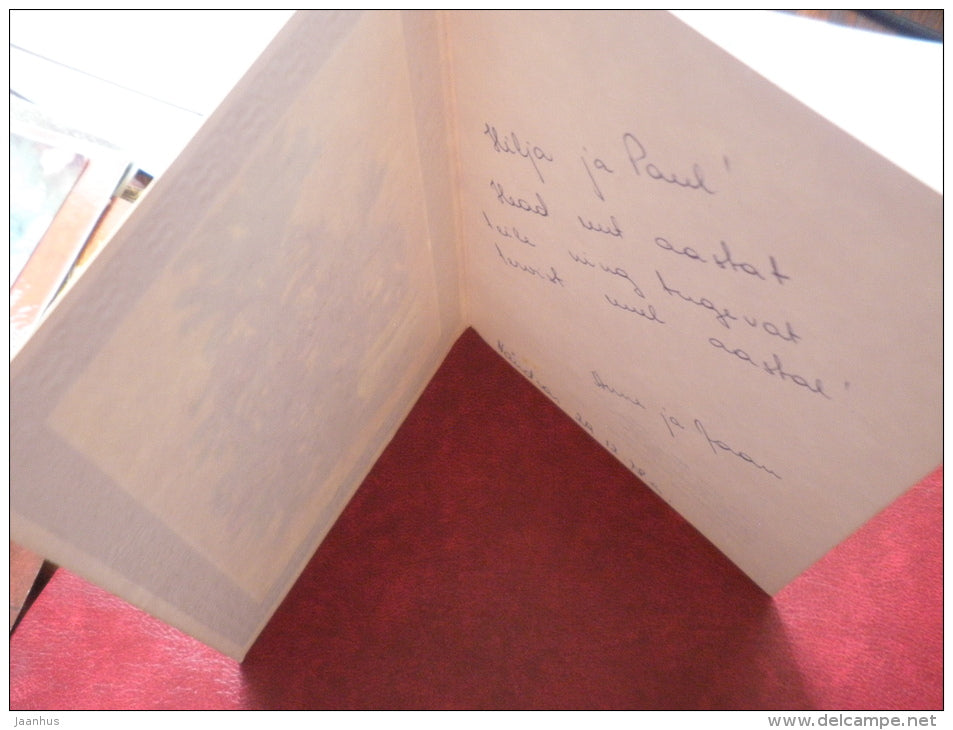 Hilja ja Paul!
Head uut aastat
ning tugevat
tervist uuel aastal!
Anne ja Jaan
24.12.78
Jaanhus
www.delcampe.net